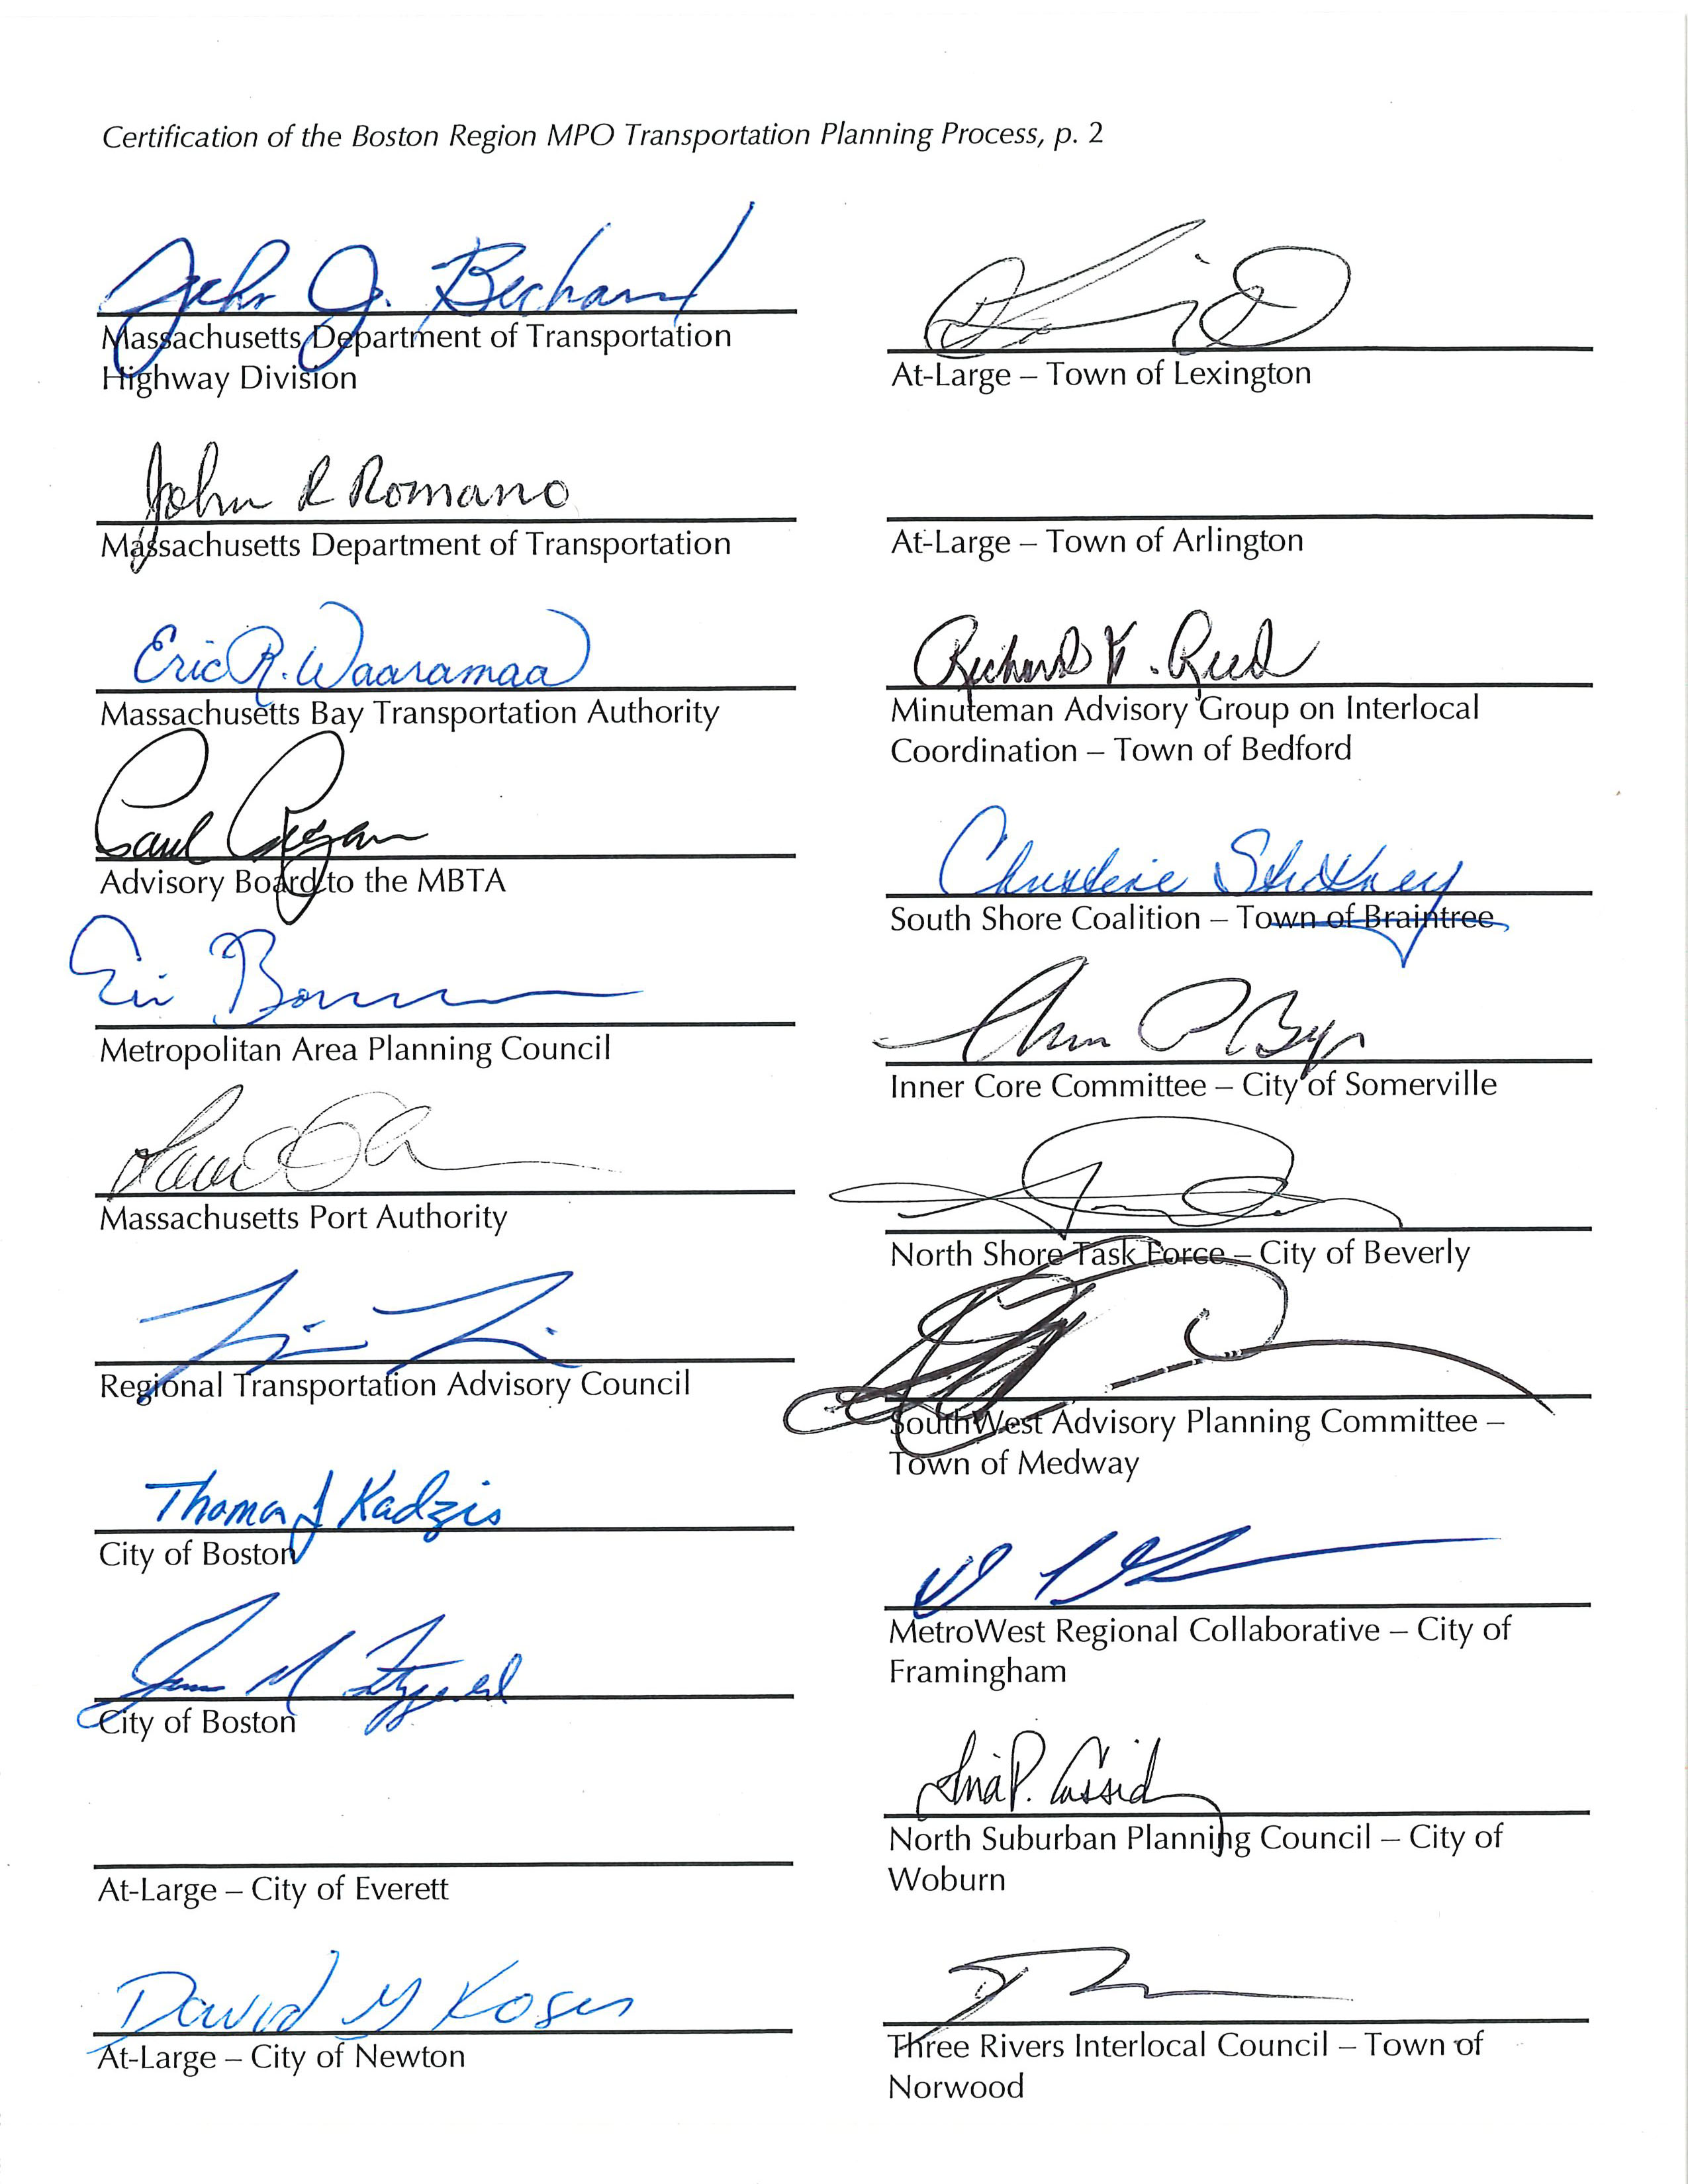 Certification of the Boston Region MPO Transportation Planning Process, p. 2
John J. Bechard
Massachusetts Department of Transportation
Highway Division
John R Romano
Massachusetts Department of Transportation
Eric R. Waaramaa
Massachusetts Bay Transportation Authority
Paul Regan
Advisory Board to the MBTA
Eric
Metropolitan Area Planning Council
Massachusetts Port Authority
Regional Transportation Advisory Council
Thomas J Kadzis
City of Boston
City of Boston
At-Large – City of Everett
David M Koses
At-Large – City of Newton
At-Large – Town of Lexington
At-Large – Town of Arlington
Richard Reed
Minuteman Advisory Group on Interlocal
Coordination – Town of Bedford
Christine Stickney
South Shore Coalition – Town of Braintree
Inner Core Committee – City of Somerville
North Shore Task Force – City of Beverly
SouthWest Advisory Planning Committee –
Town of Medway
MetroWest Regional Collaborative – City of
Framingham
Tina P. Cassidy
North Suburban Planning Council – City of
Woburn
Three Rivers Interlocal Council – Town of
Norwood